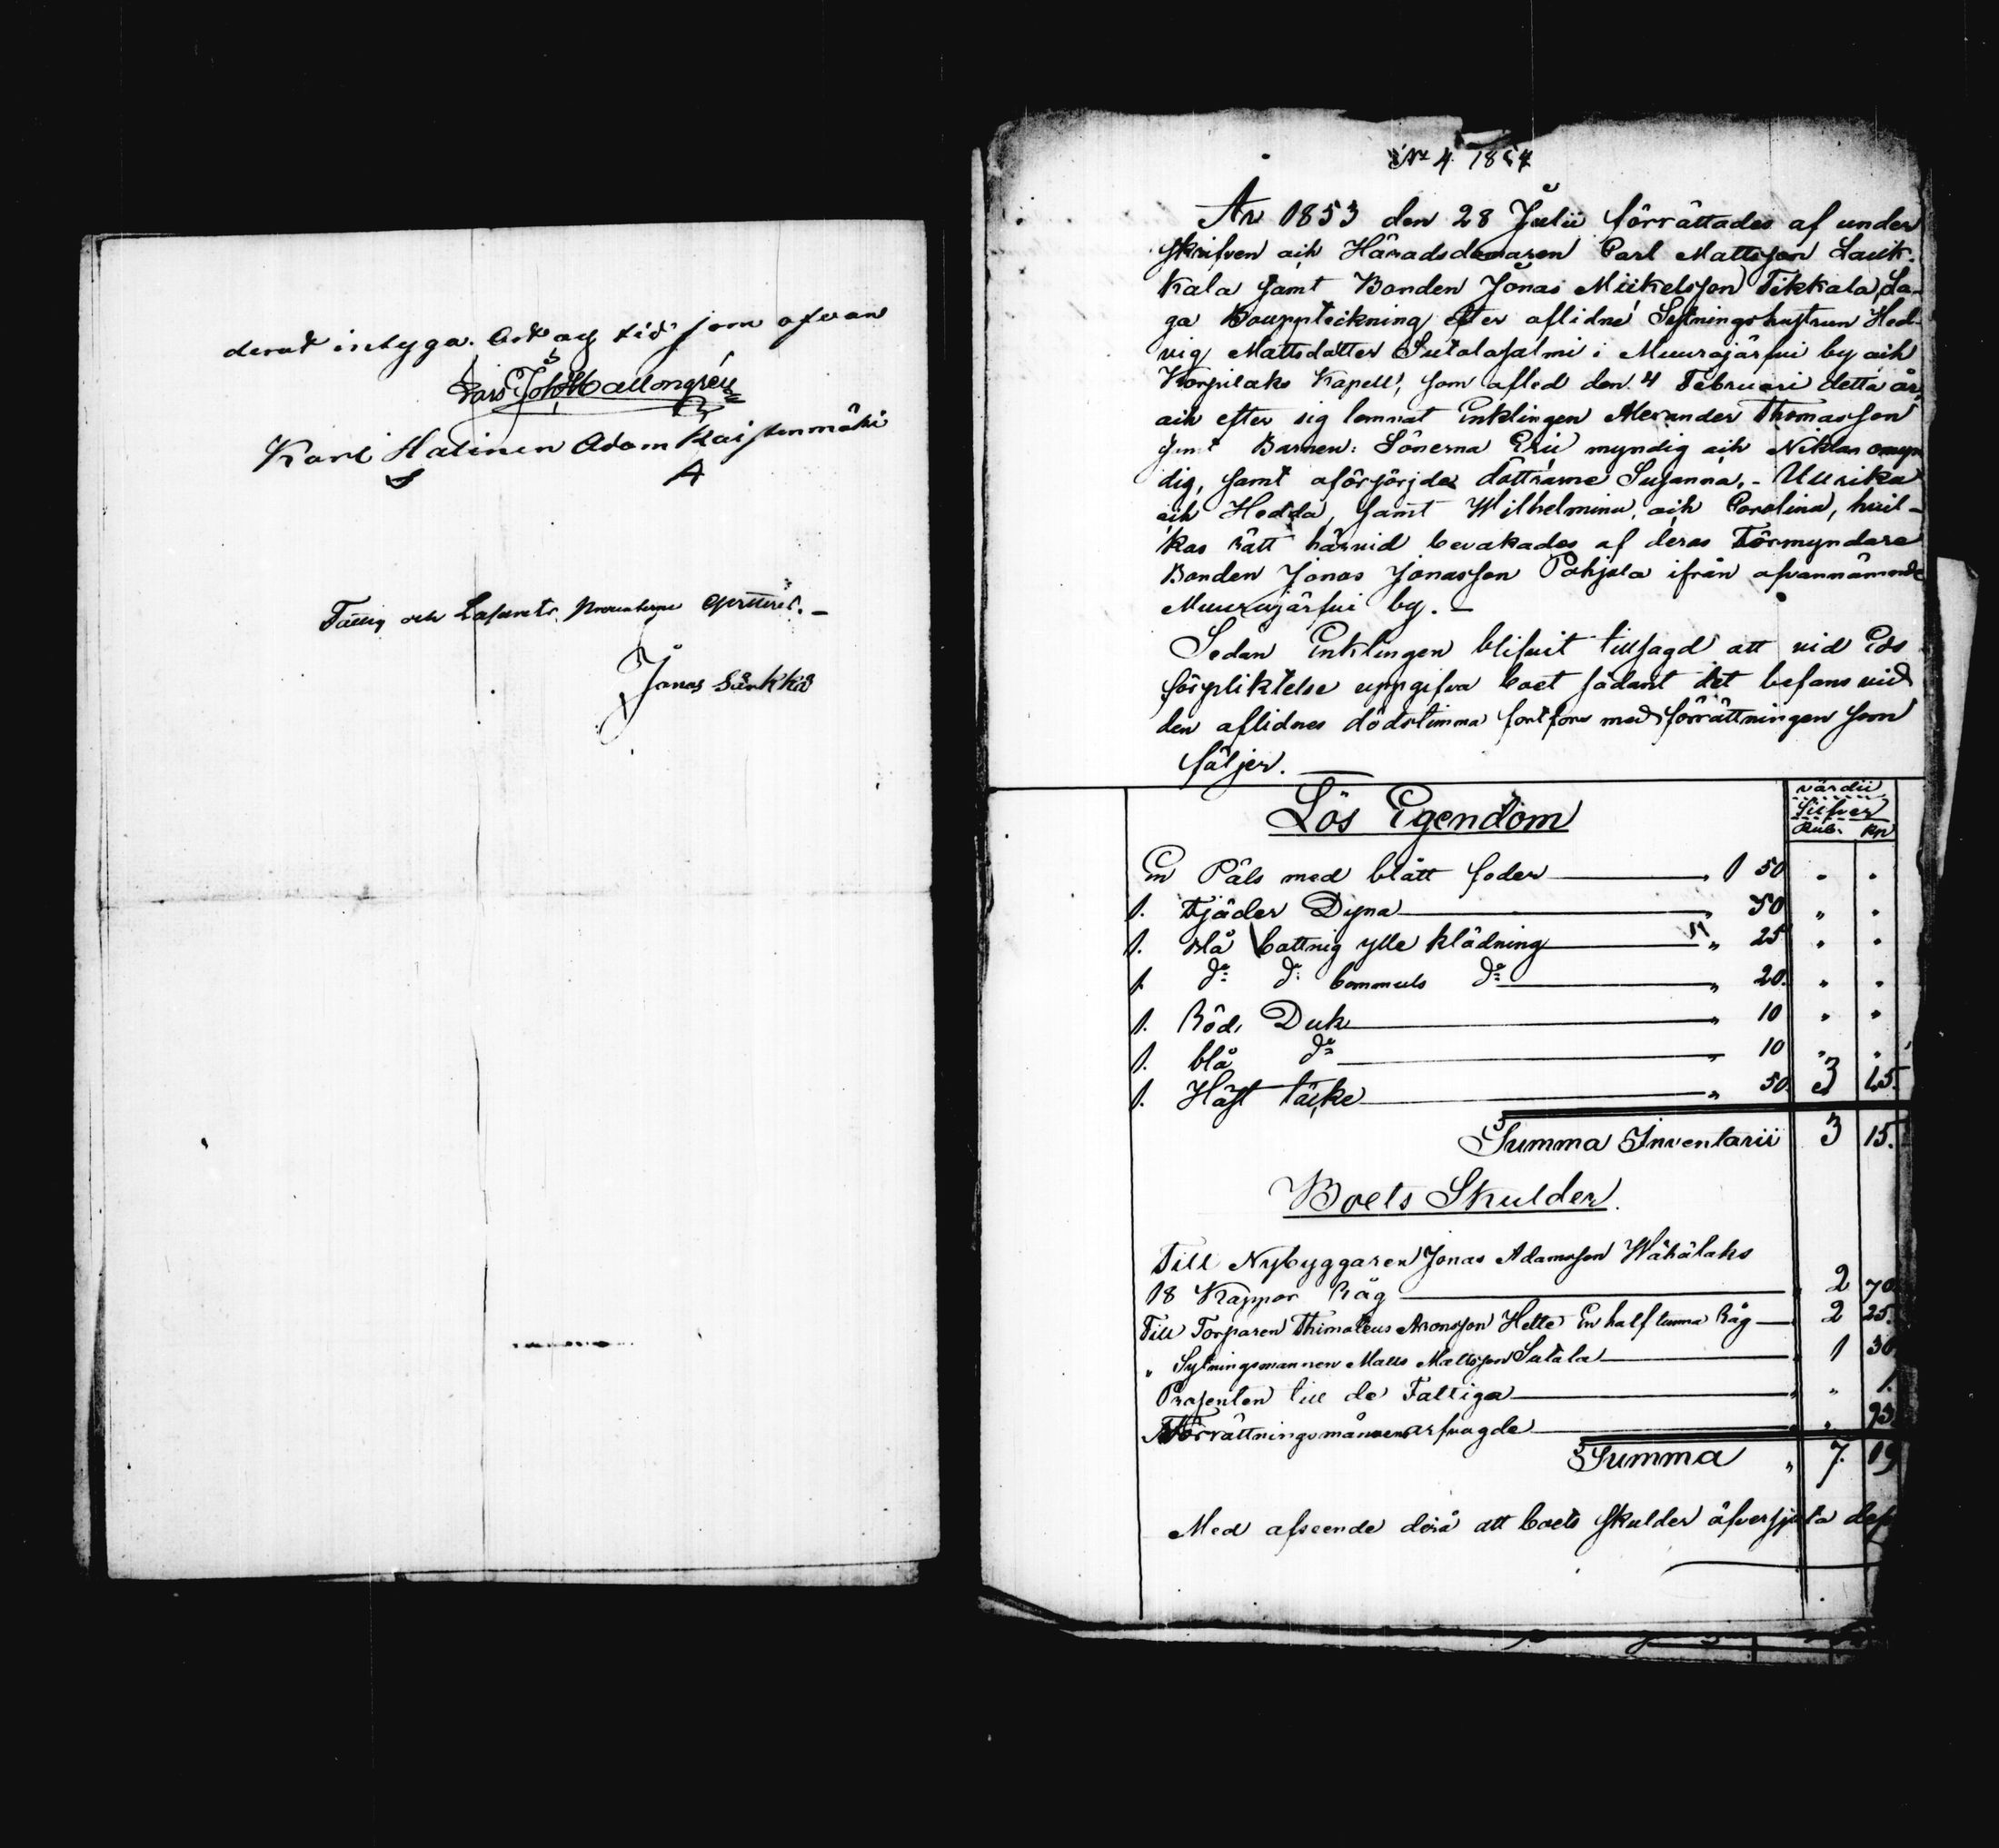 derat intyga. Ort och tid som ofvan
Lars Joh Hallongrén
Karl Halinen Adam Kaistenmäki
A
Fattig och Lasaretts Procenterne qvitteras. —
Jonas Sirkkä
No 4. 1854
År 1853 den 28 Julii förrättades af under
skrifven och Häradsdomaren Carl Mattsson Lauk-
kala samt Bonden Jonas Mickelsson Tikkala, La-
ga Bouppteckning efter aflidne Sytningshustrun Hed-
vig Mattsdotter Sutolasalmi i Muurajärfui by och
Korpilaks Kapell, som afled den 4 Februari detta år,
och efter sig lemnat Enklingen Alexander Thomasson
samt Barnen: Sönerna Eric myndig och Niklas omyn
dig, samt oförsörjde döttrarne Susanna, - Ullrika
och Hedda, samt Wilhelmina, och Carolina, hvil-
kas rätt härvid bevakades af deras Förmyndare
Bonden Jonas Jonasson Pohjola ifrån ofvannämnde
Muurajärfui by. —
Sedan Enklingen blifvit tillsagd att vid Eds
förpliktelse uppgifva boet sådant det befans vid
den aflidnes dödstimma fortfors med förrättningen som
följer. —
Lös Egendom
värdii
Silfver
Rub. Kp
En Päls med blått foder — " 1 50 " "
1. Fjäder Dyna — " 50 " "
1. blå bottnig ylle klädning — " 25 " "
1. do do bommuls do — " 20. " "
1. Röd Duk — " 10 " "
1. blå do — " 10 " "
1. Häst täcke — " 50. 3 15.
Summa Inventarii 3 15.
Boets Skulder.
Till Nybyggaren Jonas Adamsson Wähälaks
18 Kappor Råg — " 2 70.
Till Torparen Thimoteus Aronsson Helte En half tunna Råg — 2 25.
" Sytningsmannen Matts Mattsson Sutola — " 1 30.
Prosenten till de Fattiga — " " 1.
Förrättningsmännens arfvode — " " 93.
Summa " 7. 19
Med afseende derå att boets skulder öfverstiga dess